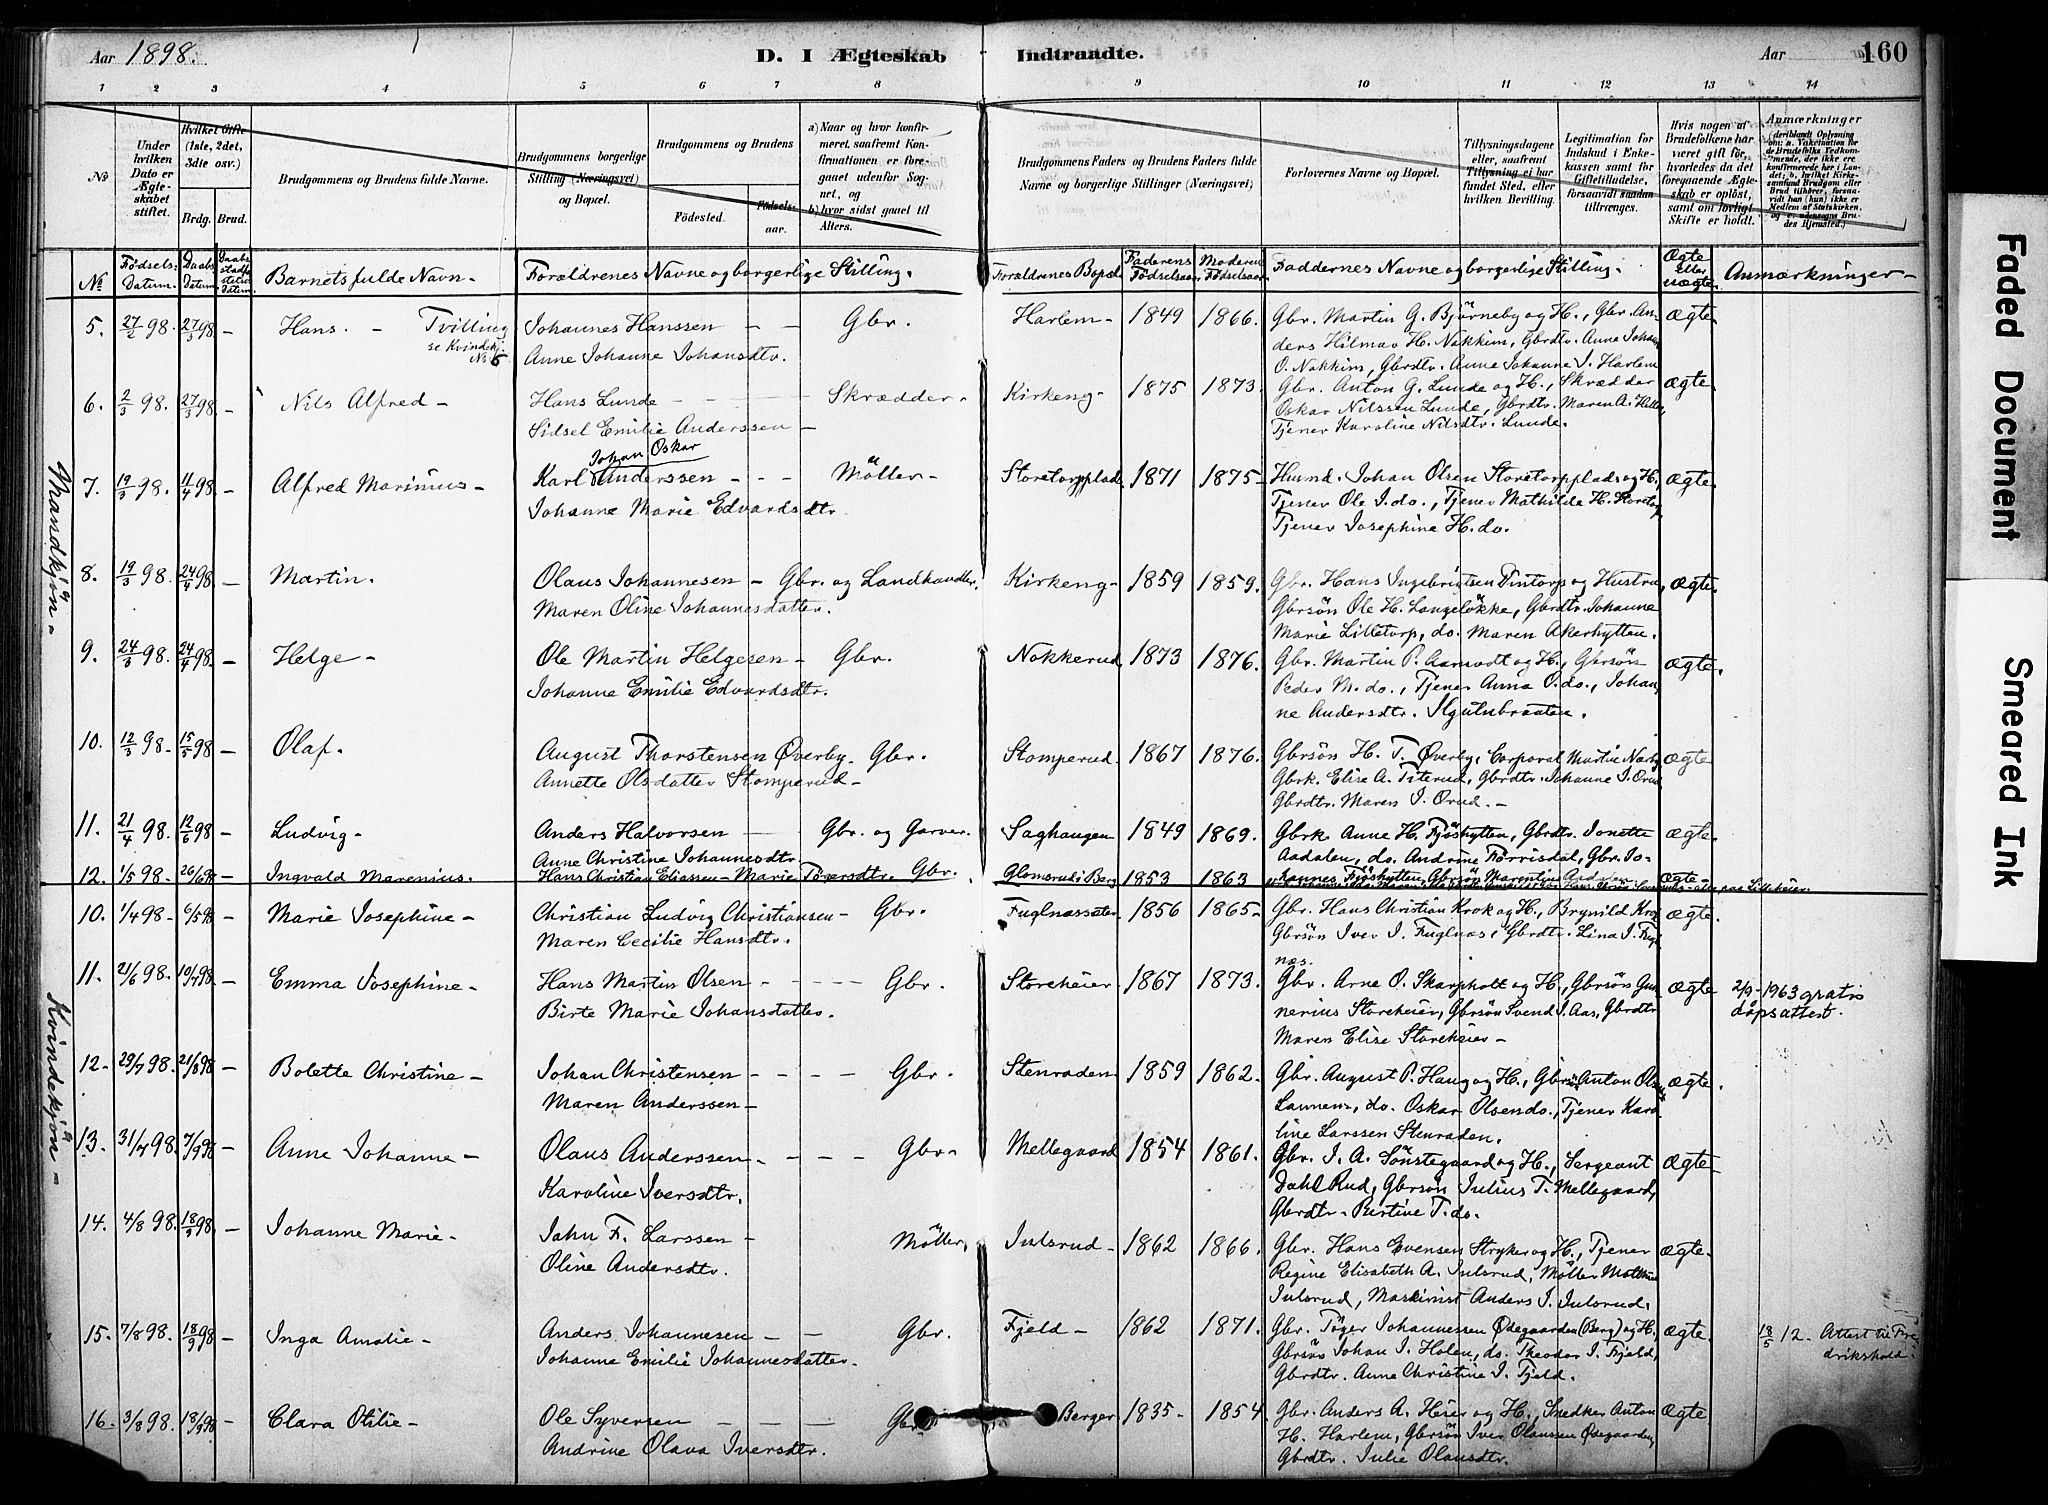 Aar 1898.
D. I Ægteskab Indtraadte.
Aar 160
1 2 3 4 5 6 7 8 9 10 11 12 13 14
No
Under hvilken Dato er Ægteskabet stiftet.
Hvilket Gifte (1ste, 2det, 3die osv.)
Brdg. Brud.
Brudgommens og Brudens fulde Navne.
Brudgommens borgerlige Stilling (Næringsvei) og Bopæl.
Brudgommens og Brudens
Fødested. Fødselsaar.
a) Naar og hvor konfirmeret, saafremt Konfirmationen er foregaaet udenfor Sognet, og
b) hvor sidst gaaet til Alters.
Brudgommens Faders og Brudens Faders fulde Navne og borgerlige Stillinger (Næringsvei)
Forlovernes Navne og Bopæl.
Tillysningsdagene eller, saafremt Tillysning ei har fundet Sted, efter hvilken Bevilling.
Legitimation for Indskud i Enkekassen samt for Giftetilladelse, forsaavidt saadan tiltrænges.
Hvis nogen af Brudefolkene har været gift før, hvorledes da det foregaaende Ægteskab er opløst, samt om lovligt Skifte er holdt.
Anmærkninger
No Fødsels-Datum. Daabs Datum. Barnets fulde Navn- Forældrenes Navne og borgerlige Stilling. Forældrenes Bopæl Faderens Fødselsaar Moderens Fødselsaar. Faddernes Navne og borgerlige Stilling. Ægte eller uægte. Anmærkninger-
Mandkjøn-
5. 27/2 98. 27/3 98 - Hans. - Tvilling se Kvindekj. No Johannes Hanssen - - Gbr. Harlem- 1849 1866. Gbr. Martin G. Bjørneby og H., Gbr. An- ægte.
Anne Johanne Johansdtr. ders Hilmar H. Nokkim, Gbrdtr. Anna Johan
O. Nokkim, Gbrdtr. Anne Johanne J. Harlem
6. 2/3 98. 27/3 98 - Nils Alfred - Hans Lunde - Skrædder- Kirkeng- 1875 1873. Gbr. Anton G. Lunde og H., Skrædder ægte.
Sidsel Emilie Anderssen - Oskar Nilssen Lunde, Gbrdtr. Maren A.
Tjener Karoline Nilsdtr. Lunde.
Johan Oskar
7. 19/3 98. 11/4 98 - Alfred Marinius - Karl Anderssen - - - Möller- Storetorpplads 1871 1875- Husmd. Johan Olsen Storetorpplads og H., ægte.
Johanne Marie Edvardsdtr. Tjener Ole J. do., Tjener Mathilde H. Storetorp
Tjener Josephine H. do.
8. 19/3 98. 24/4 98 - Martin. Olaus Johannesen - Gbr. og Landhandler. Kirkeng- 1859 1859. Gbr. Hans Ingebrigtsen Dintorp og Hustru, ægte.
Maren Oline Johannesdatter. Gbrsön Ole H. Langelökke, Gbrdtr. Johanne
Marie Lilletorp, do. Maren Akerhytten.
9. 24/3 98. 24/4 98 - Helge - Ole Martin Helgesen - Gbr. Nokkerud 1873 1876. Gbr. Martin P. Aamodt og H., Gbrsön ægte.
Johanne Emilie Edvardsdtr. Peder M. do., Tjener Anna O. do., Johan-
ne Andersdtr.
10. 12/3 98 - 15/5 98 - Olaf. August Thorstensen Øverby - Gbr. Stomperud. 1867 1876. Gbrsön H. T. Øverby, Corporal Martin ægte
Annette Olsdatter Stomperud - Gbrk. Elise A. Titerud, Gbrdtr. Johanne J. Orud
Gbrdtr. Maren J. Orud. -
11. 21/4 98. 12/6 98 - Ludvig - Anders Halvorsen - Gbr. og Garver. Saghaugen 1849 1869. Gbrk. Anne H. Fjöshytten, Gbrdtr. Jonette ægte.
Anne Christine Johannesdtr. Aadalen, do. Andrine Förrisdal, Gbr. Jo-
12. 1/5 98. 26/6 98 - Ingvald Marenius. Hans Christian Eliassen - Marie Tøgersdtr. Gbr. Glomsrud i Berg 1853 1863 hannes Fjöshytten, Gbrsön Marentius Aadalen ægte-
Kvindekjøn -
10. 1/4 98. 6/5 98 - Marie Josephine - Christian Ludvig Christiansen - Gbr. Fuglnæssæter 1856 1865- Gbr. Hans Christian Krok og H., Brynild Krok ægte.
Maren Cecilie Hansdtr. Gbrsön Iver J. Fuglnæs, Gbrdtr. Lina J. Fugl-
næs.
11. 21/6 98. 10/7 98 - Emma Josephine - Hans Martin Olsen - - - - Gbr. Storeheier 1867 1873. Gbr. Arne O. Skarpholt og H., Gbrsön Gun- ægte 2/9 - 1963 gratis
Birte Marie Johansdatter. nerius Storeheier, Gbrsön Svend J. Aas, Gbrdtr. dåpsattest.
Maren Elise Storeheier -
12- 29/7 98. 21/8 98 - Bolette Christine - Johan Christensen - - - - Gbr. Stenraden 1859 1862. Gbr. August P. Haug og H., Gbrsön Anton Olsen ægte.
Maren Anderssen - Launem, do. Oskar Olsen do., Tjener Karo-
line Larssen Stenraden.
13. 31/7 98. 7/9 98 - Anne Johanne - Olaus Anderssen - - - - Gbr- Mellegaard 1854 1861. Gbr. J. A. Sönstegaard og H., Sergeant ægte-
Karoline Iversdtr. Dahl Rud, Gbrsön Julius T. Mellegaard,
Gbrdtr. Bertine T. do.
14. 4/8 98. 18/9 98. - Johanne Marie - John F. Larssen - Möller. Julsrud - 1862 1866. Gbr. Hans Evensen Stryker og H., Tjener ægte-
Oline Andersdtr. Regine Elisabeth A. Julsrud, Möller
Julsrud, Maskinist Anders J. Julsrud.
15. 7/8 98. 18/9 98 - Inga Amalie - Anders Johannesen - - Gbr. Fjeld - 1862 1871. Gbr. Töger Johannessen Ødegaarden (Berg) og H. ægte. 18/5 12 - Attest til Fre-
Johanne Emilie Johannesdatter. Gbrsön Johan J. Holen, do. Theodor J. Fjeld, drikshald.
Gbrdtr. Anne Christine J. Fjeld.
16- 3/8 98. 18/9 98 - Clara Otilie - Ole Syversen - - - Gbr. Berger 1835- 1854. Gbr. Anders A. Heier og H., Snedker Anton ægte-
Andrine Olava Iversdtr. H. Harlem, Gbrsön Iver Olaussen Ødegaarden,
Gbrdtr. Julie Olausdtr.
Faded Document
Smeared Ink